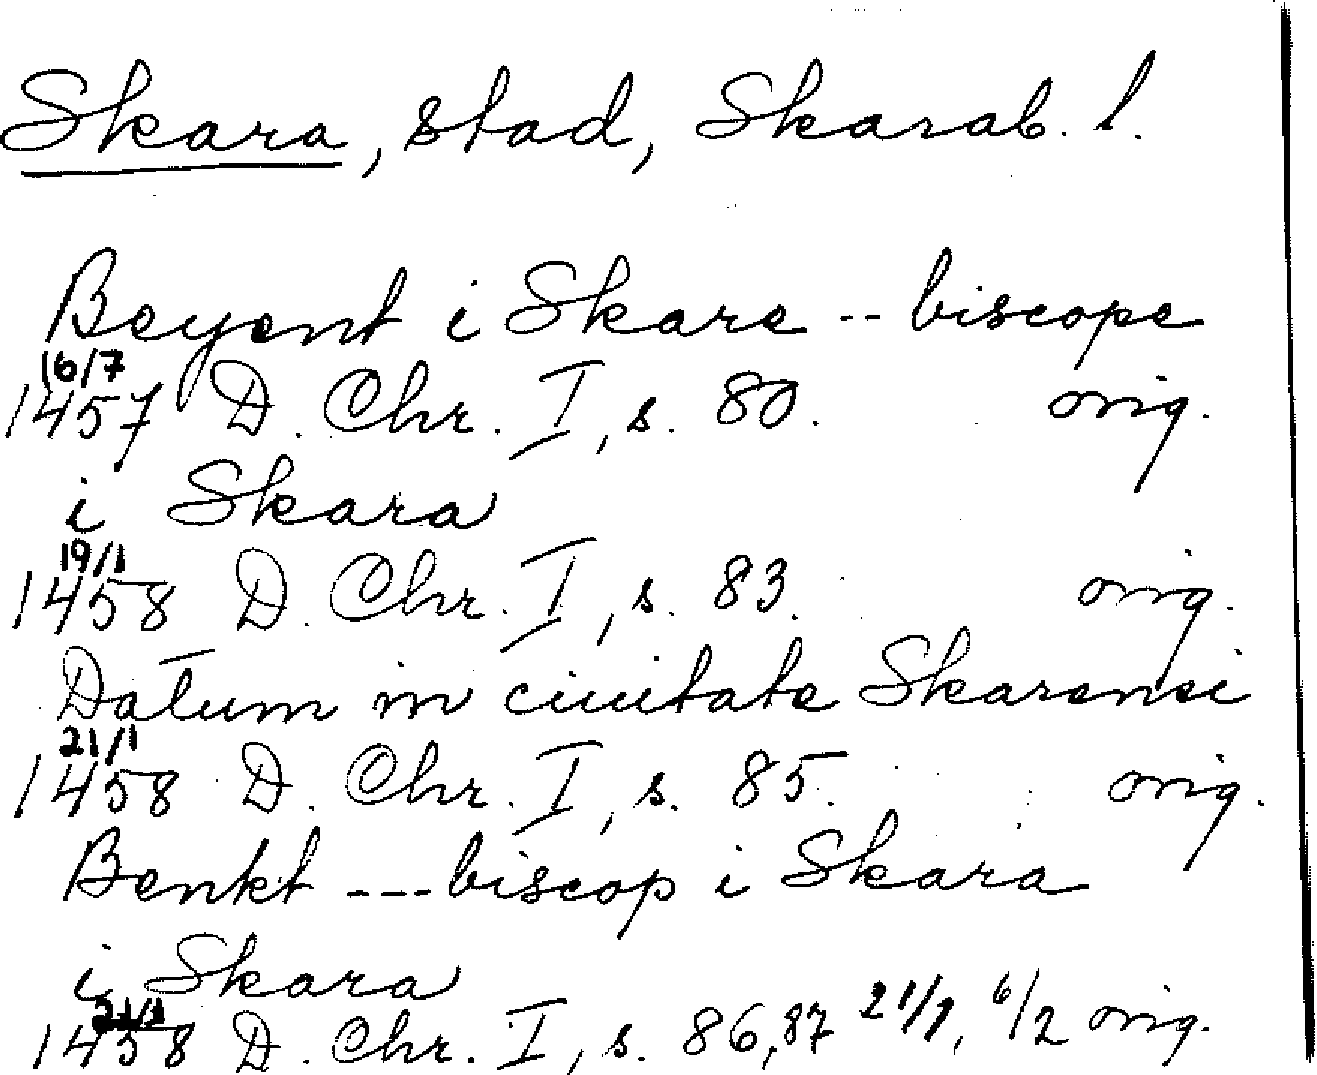 Skara, stad, Skarab. l.
Beyent i Skare -- biscope
16/7
1457 D. Chr. I, s. 80. orig.
i Skara
19/1
1458 D. Chr. I, s. 83. orig.
Datum in ciuitate Skarensi
21/1
1458 D. Chr. I, s. 85. orig.
Benkt --- biscop i Skara
i Skara
1458 D. Chr. I, s. 86, 87 21/1, 6/2 orig.